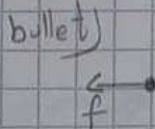 bullet)
f